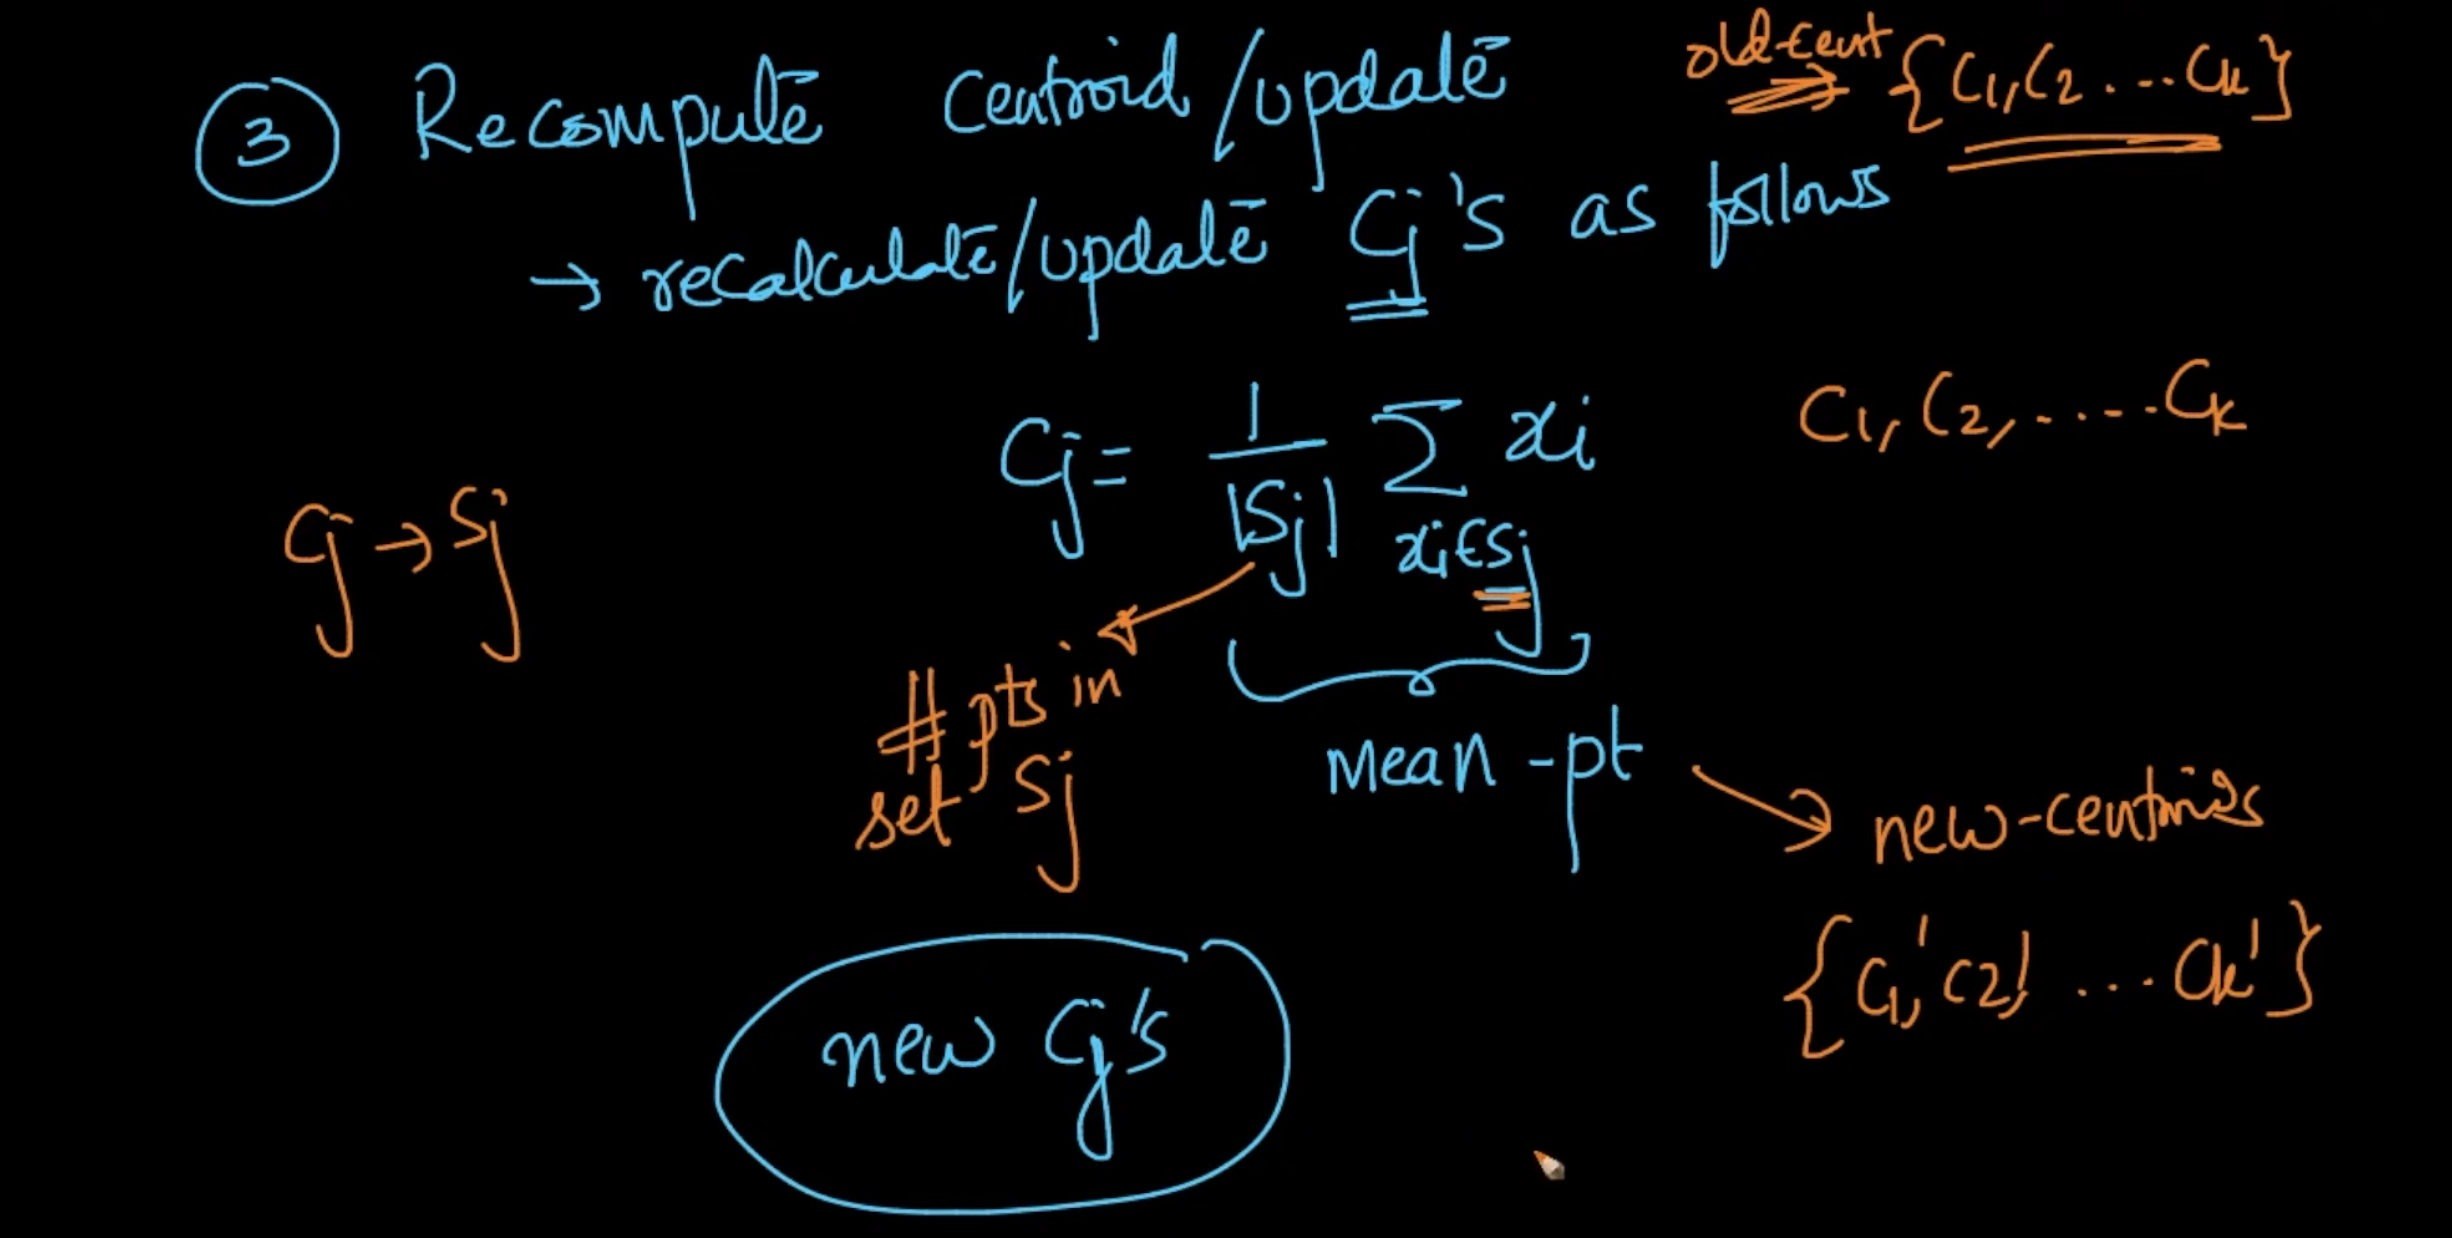 ③ Recompute centroid/update
old-cent → {C1, C2 ... Ck}
→ recalculate/update Cj's as follows
Cj = 1/|Sj| Σ xi∈Sj xi
C1, C2, ..... Ck
Cj → Sj
# pts in
set Sj
mean-pt
→ new-centroids
{C1', C2', ... Ck'}
new Cj's